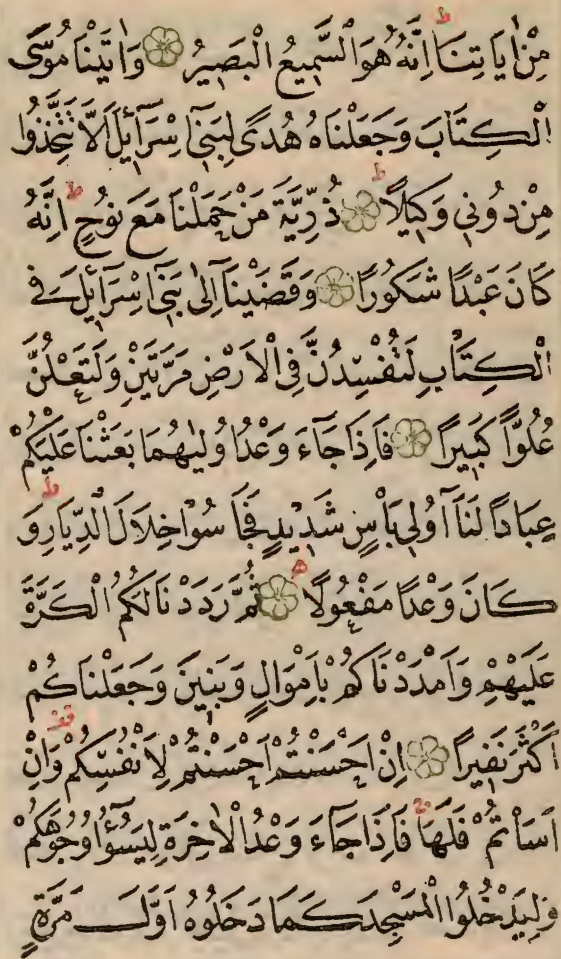 مِنْ اٰيَاتِنَا ط اِنَّهُ هُوَ السَّمِيعُ الْبَصِيرُ وَاٰتَيْنَا مُوسَى
الْكِتَابَ وَجَعَلْنَاهُ هُدًى لِبَنِىٓ اِسْرَآئِلَ اَلَّا تَتَّخِذُوا
مِنْ دُونِي وَكِيلًا ط ذُرِّيَّةَ مَنْ حَمَلْنَا مَعَ نُوحٍ ط اِنَّهُ
كَانَ عَبْدًا شَكُورًا وَقَضَيْنَآ اِلٰى بَنِىٓ اِسْرَآئِلَ فِي
الْكِتَابِ لَتُفْسِدُنَّ فِي الْاَرْضِ مَرَّتَيْنِ وَلَتَعْلُنَّ
عُلُوًّا كَبِيرًا فَاِذَا جَآءَ وَعْدُ اُولٰيهُمَا بَعَثْنَا عَلَيْكُمْ
عِبَادًا لَنَآ اُولِي بَاْسٍ شَدِيدٍ فَجَاسُوا خِلَالَ الدِّيَارِ ط وَ
كَانَ وَعْدًا مَفْعُولًا ثُمَّ رَدَدْنَا لَكُمُ الْكَرَّةَ
عَلَيْهِمْ وَاَمْدَدْنَاكُمْ بِاَمْوَالٍ وَبَنِينَ وَجَعَلْنَاكُمْ
اَكْثَرَ نَفِيرًا اِنْ اَحْسَنْتُمْ اَحْسَنْتُمْ لِاَنْفُسِكُمْ قف وَاِنْ
اَسَاْتُمْ فَلَهَا فَاِذَا جَآءَ وَعْدُ الْاٰخِرَةِ لِيَسُٓوؤُا وُجُوهَكُمْ
وَلِيَدْخُلُوا الْمَسْجِدَ كَمَا دَخَلُوهُ اَوَّلَ مَرَّةٍ